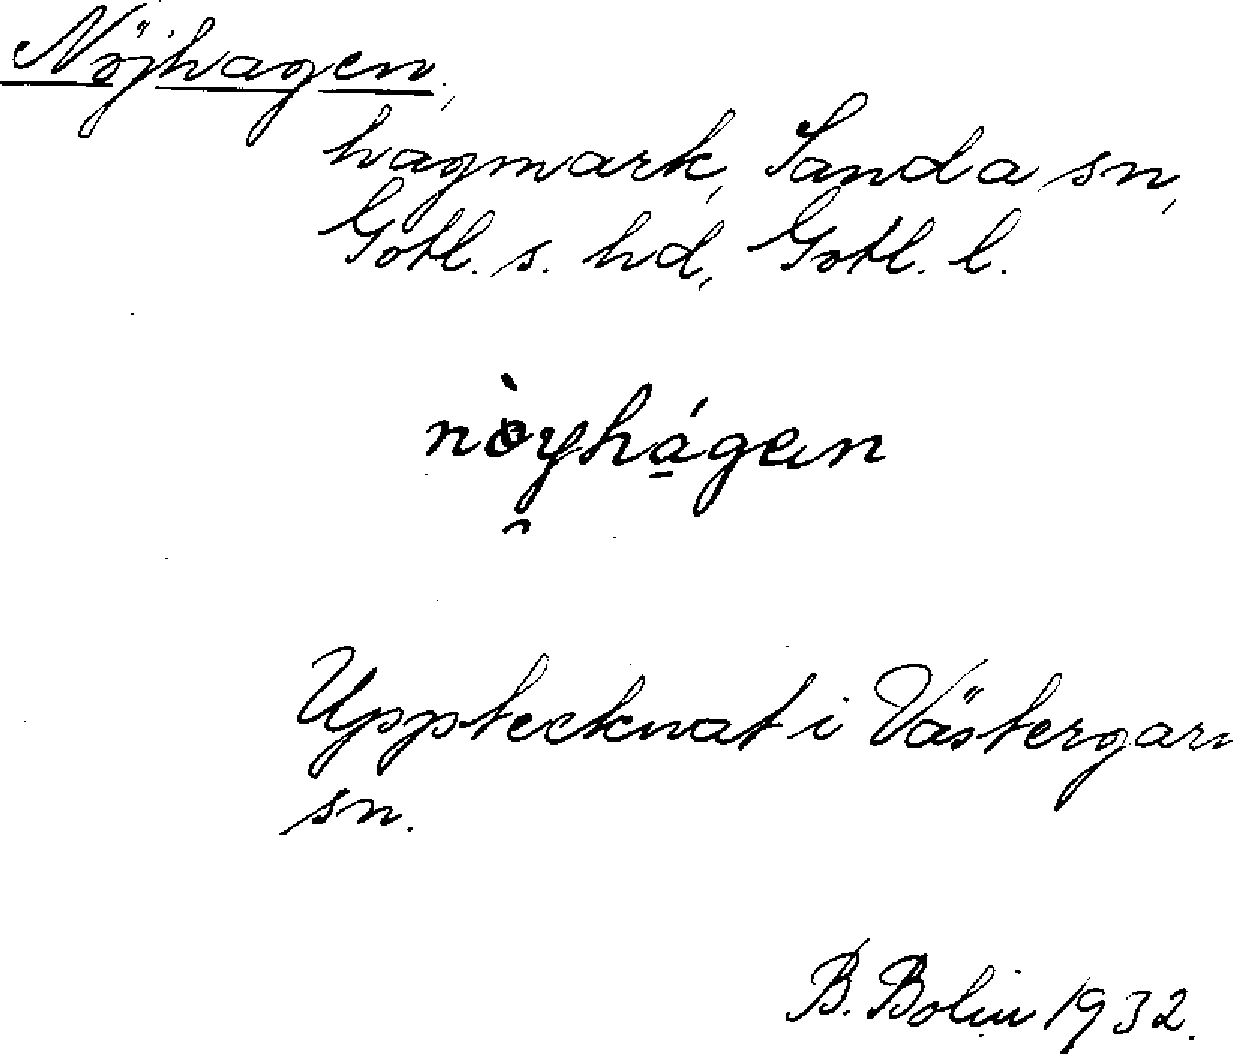 Nöjhagen,
hagmark, Sanda sn,
Gotl. s. hd, Gotl. l.
nòy̯há̱gan
Upptecknat i Västergarn
sn.
B. Bolin 1932.